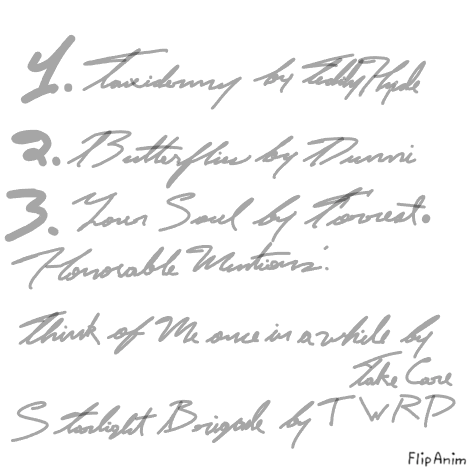 1. Taxidermy by Teddy Hyde
2. Butterflies by Dunni
3. Your Soul by Forrest.
Honorable Mentions:
Think of Me once in a while by
Take Care
Starlight Brigade by TWRP
FlipAnim